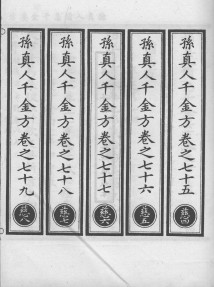 孫真人千金方卷之七十五
孫真人千金方卷之七十六
孫真人千金方卷之七十七
孫真人千金方卷之七十八
孫真人千金方卷之七十九